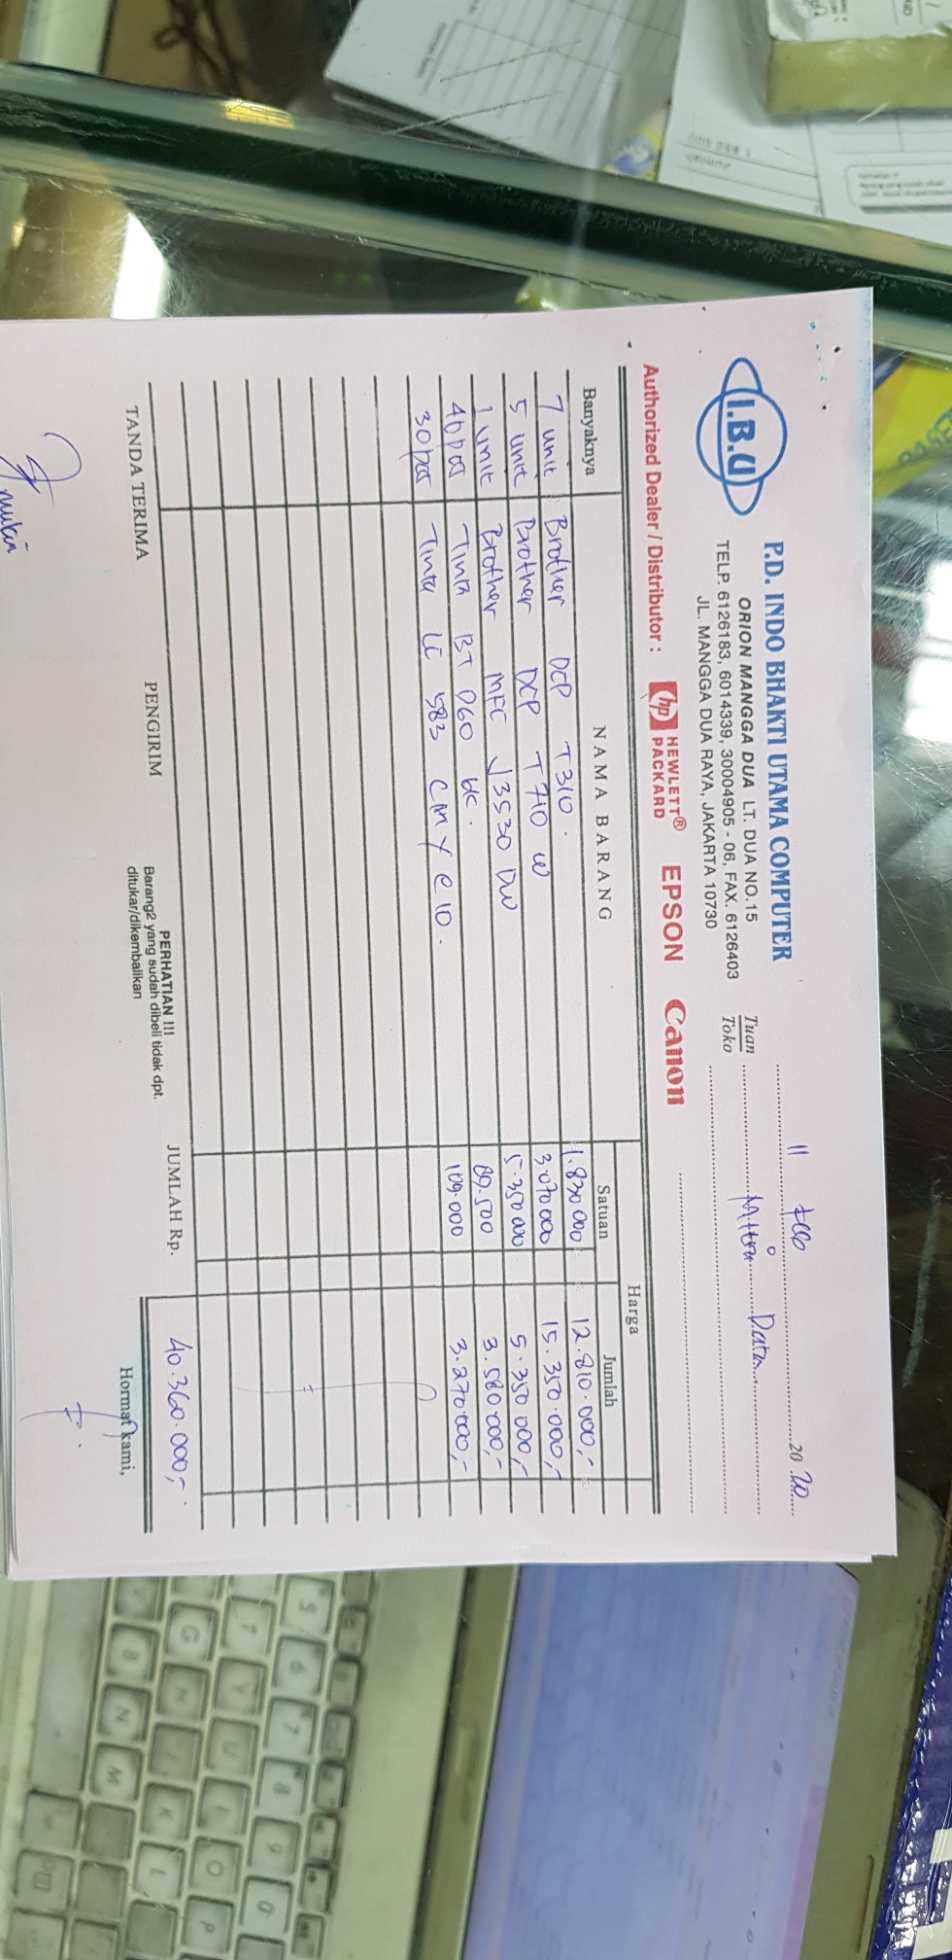 I.B.U
P.D. INDO BHAKTI UTAMA COMPUTER
ORION MANGGA DUA LT. DUA NO.15
TELP. 6126183, 6014339, 30004905 - 06, FAX. 6126403
JL. MANGGA DUA RAYA, JAKARTA 10730
11 Feb 20 20
Tuan Mitra Data
Toko
Authorized Dealer / Distributor : hp HEWLETT® PACKARD EPSON Canon
Banyaknya NAMA BARANG Harga
Satuan Jumlah
7 unit Brother DCP T310. 1.830.000 12.810.000,-
5 unit Brother DCP T710 W 3.070.000 15.350.000,-
1 unit Brother MFC J3530 DW 5.350.000 5.350.000,-
40 pcs Tinta BT D60 BK. 89.500 3.580.000,-
30 pcs Tinta LC 583 C M Y @ 10. 109.000 3.270.000,-
JUMLAH Rp. 40.360.000,-
TANDA TERIMA PENGIRIM
PERHATIAN !!!
Barang2 yang sudah dibeli tidak dpt.
ditukar/dikembalikan
Hormat kami,